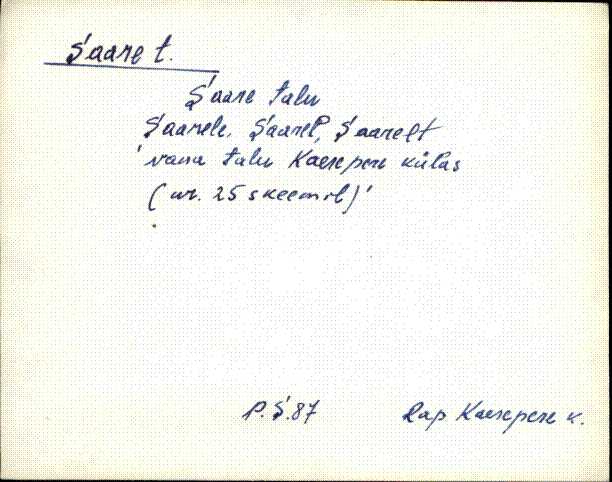 Saare t.
Saare talu
Saarele, Saarel, Saarelt
'vana talu Kaerepere külas
(nr. 25 skeemil)'
P.S.87
Rap Kaerepere k.